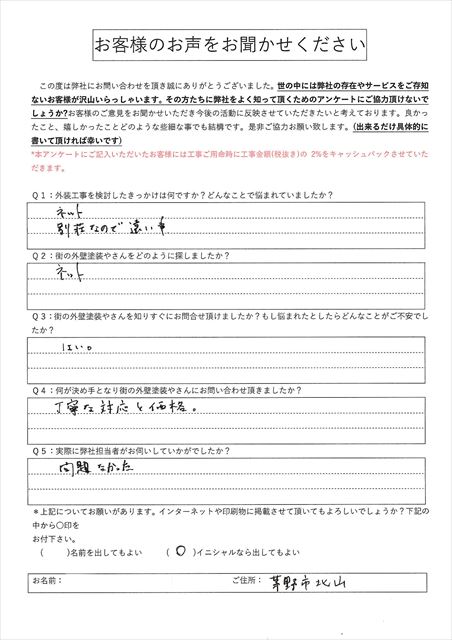 お客様のお声をお聞かせください
この度は弊社にお問い合わせを頂き誠にありがとうございました。世の中には弊社の存在やサービスをご存知
ないお客様が沢山いらっしゃいます。その方たちに弊社をよく知って頂くためのアンケートにご協力頂けないで
しょうか?お客様のご意見をお聞かせいただき今後の活動に反映させていただきたいと考えております。良かっ
たこと、嬉しかったことどのような些細な事でも結構です。是非ご協力お願い致します。(出来るだけ具体的に
書いて頂ければ幸いです)
*本アンケートにご記入いただいたお客様には工事ご用命時に工事金額(税抜き)の 2%をキャッシュバックさせていた
だきます。
Q1:外装工事を検討したきっかけは何ですか?どんなことで悩まれていましたか?
ネット
別荘なので遠い事
Q2:街の外壁塗装やさんをどのように探しましたか?
ネット
Q3:街の外壁塗装やさんを知りすぐにお問合せ頂けましたか?もし悩まれたとしたらどんなことがご不安でし
たか?
はい。
Q4:何が決め手となり街の外壁塗装やさんにお問い合わせ頂きましたか?
丁寧な対応と価格。
Q5:実際に弊社担当者がお伺いしていかがでしたか?
問題なかった
*上記についてお願いがあります。インターネットや印刷物に掲載させて頂いてもよろしいでしょうか?下記の
中から〇印を
お付下さい。
( )名前を出してもよい (〇)イニシャルなら出してもよい
お名前: ご住所: 茅野市北山